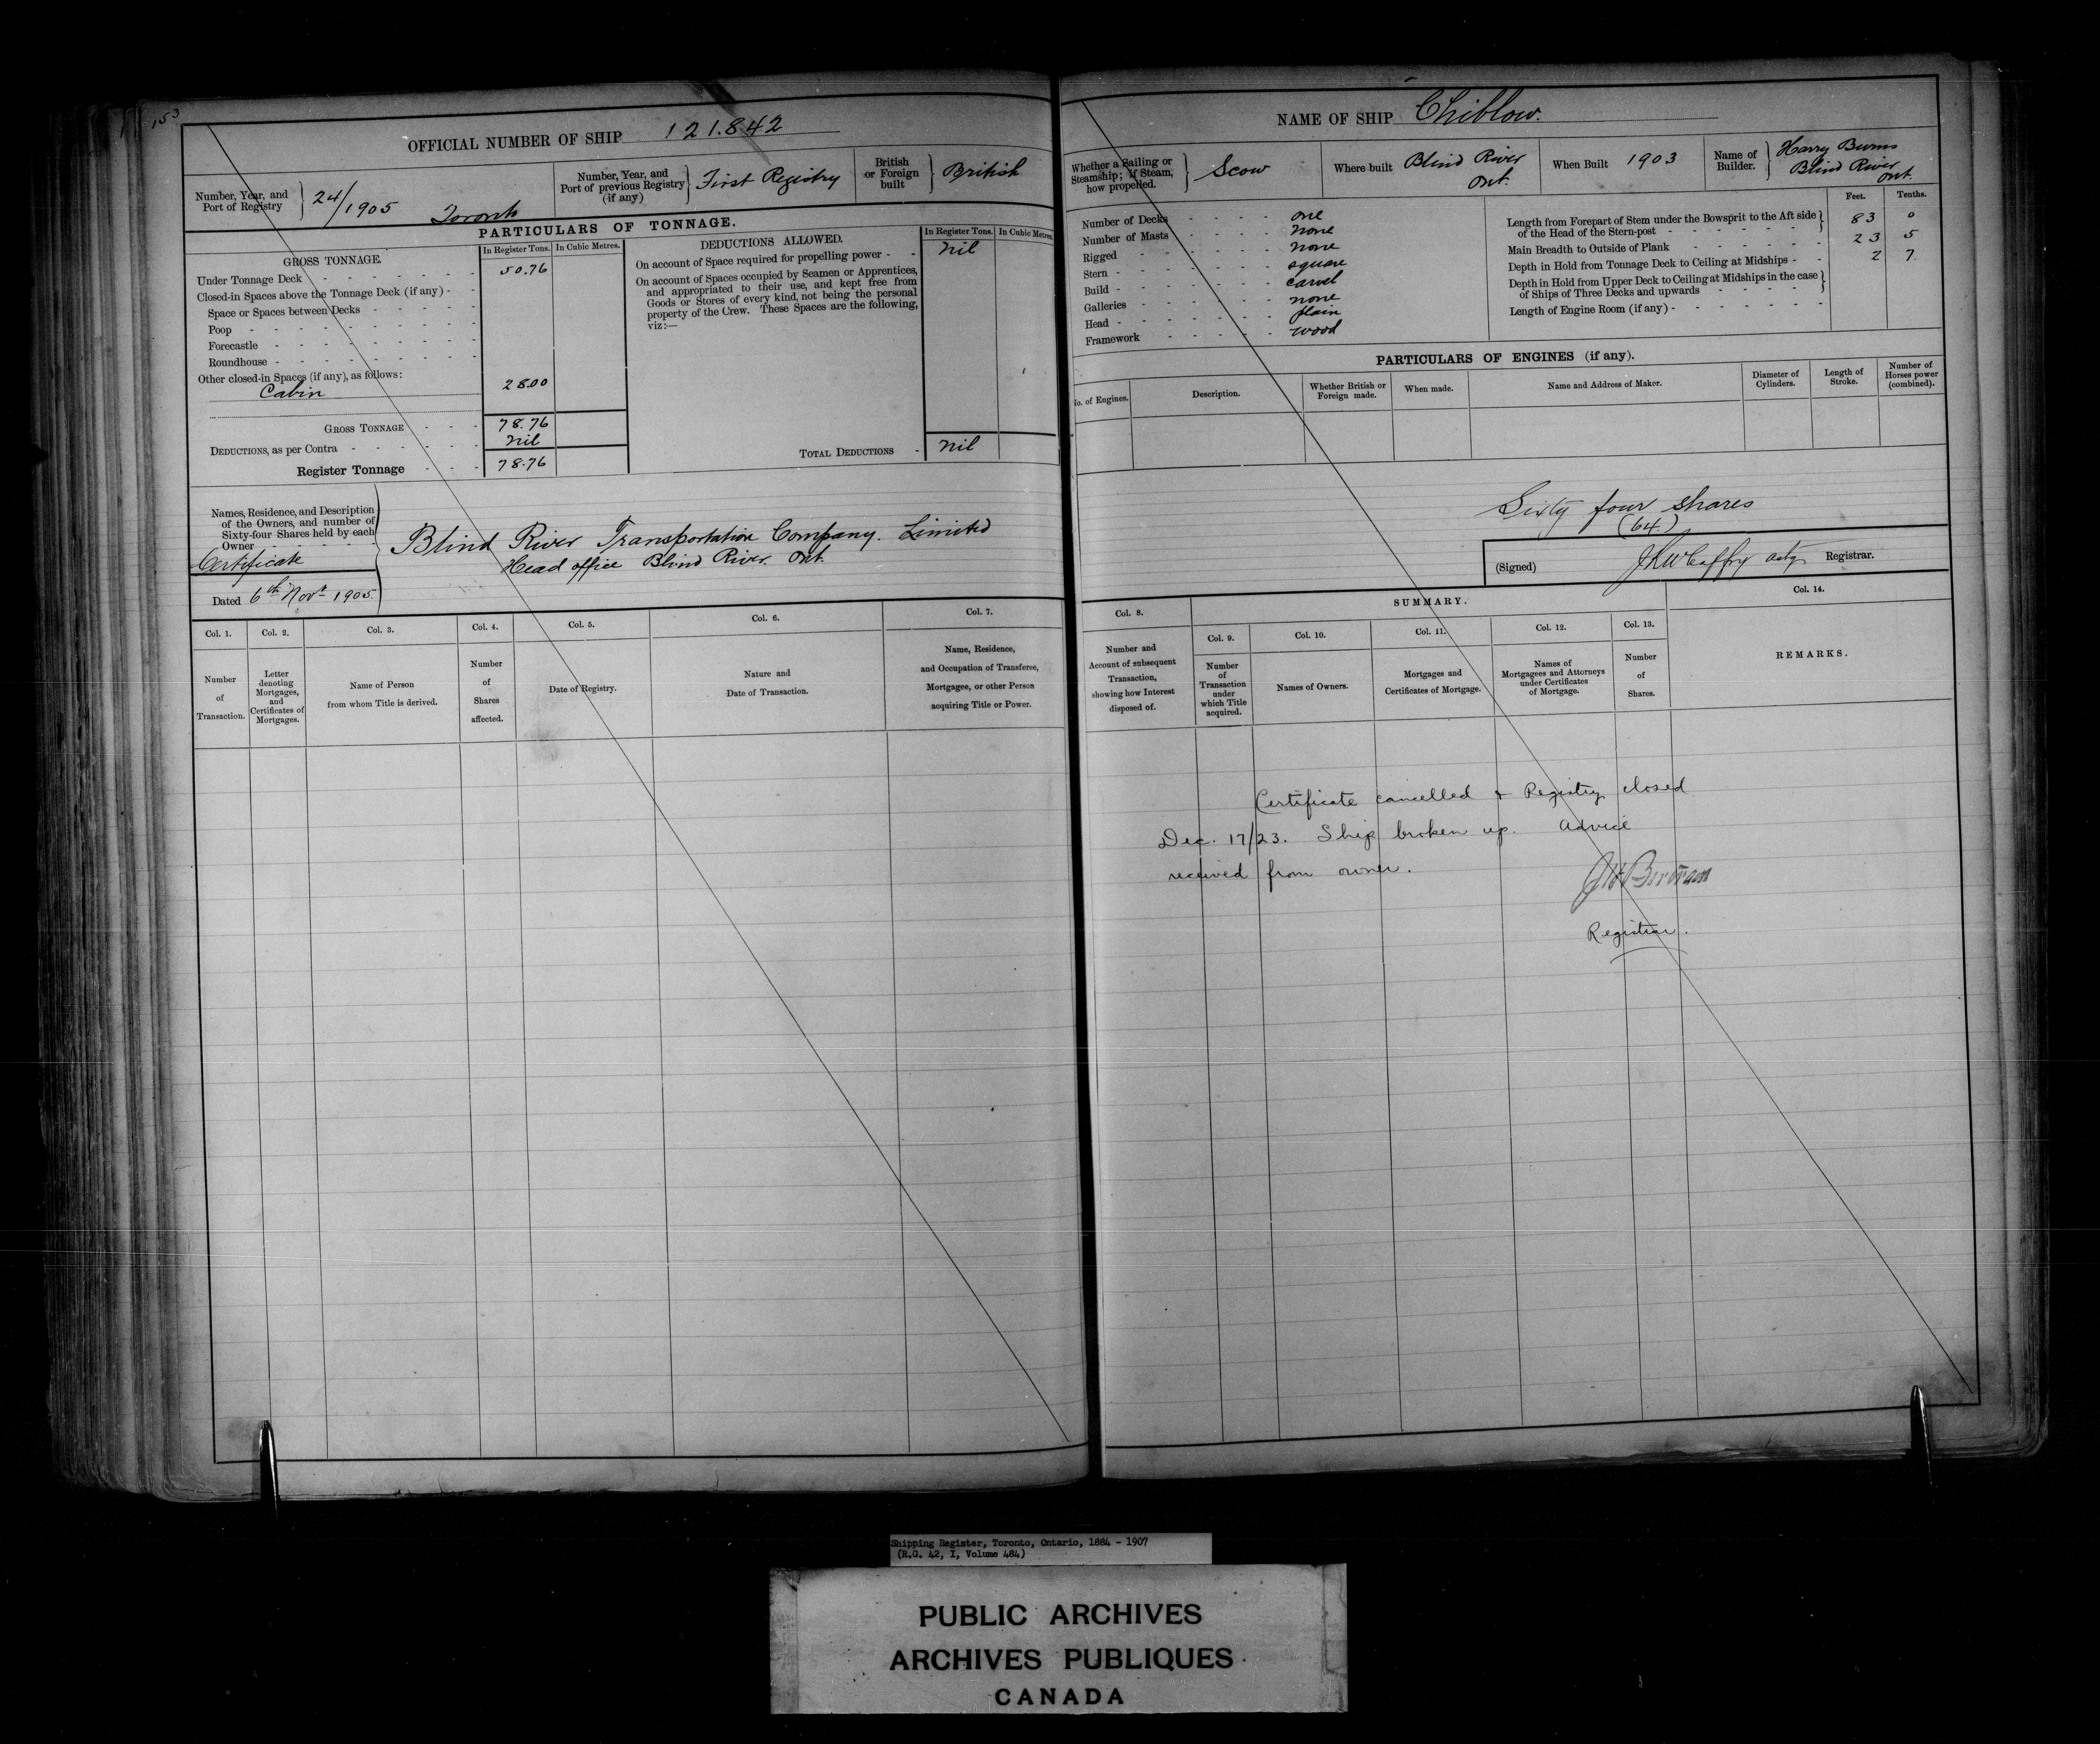 153
OFFICIAL NUMBER OF SHIP 121.842
Number, Year, and
Port of Registry
24/1905 Toronto
Number, Year, and
Port of previous Registry
(if any)
First Registry
British
or Foreign
built
British
PARTICULARS OF TONNAGE.
GROSS TONNAGE.
In Register Tons. In Cubic Metres.
Under Tonnage Deck 50.76
Closed-in Spaces above the Tonnage Deck (if any)
Space or Spaces between Decks
Poop
Forecastle
Roundhouse
Other closed-in Spaces (if any), as follows:
Cabin 28.00
GROSS TONNAGE 78.76
DEDUCTIONS, as per Contra nil
Register Tonnage 78.76
DEDUCTIONS ALLOWED.
In Register Tons. In Cubic Metres.
On account of Space required for propelling power - nil
On account of Spaces occupied by Seamen or Apprentices,
and appropriated to their use, and kept free from
Goods or Stores of every kind, not being the personal
property of the Crew. These Spaces are the following,
viz:—
TOTAL DEDUCTIONS - nil
Names, Residence, and Description
of the Owners, and number of
Sixty-four Shares held by each
Owner
Certificate
Dated 6th Novr 1905
Blind River Transportation Company. Limited
Head office Blind River. Ont.
Col. 1.
Number
of
Transaction.
Col. 2.
Letter
denoting
Mortgages,
and
Certificates of
Mortgages.
Col. 3.
Name of Person
from whom Title is derived.
Col. 4.
Number
of
Shares
affected.
Col. 5.
Date of Registry.
Col. 6.
Nature and
Date of Transaction.
Col. 7.
Name, Residence,
and Occupation of Transferee,
Mortgagee, or other Person
acquiring Title or Power.
NAME OF SHIP Chiblow.
Whether a Sailing or
Steamship; if Steam,
how propelled.
Scow
Where built Blind River
Ont.
When Built 1903
Name of
Builder.
Harry Burns
Blind River
Ont.
Number of Decks - one
Number of Masts - none
Rigged - none
Stern - square
Build - carvel
Galleries - none
Head - plain
Framework - wood
Feet. Tenths.
Length from Forepart of Stem under the Bowsprit to the Aft side
of the Head of the Stern-post 83 0
Main Breadth to Outside of Plank 23 5
Depth in Hold from Tonnage Deck to Ceiling at Midships - 2 7
Depth in Hold from Upper Deck to Ceiling at Midships in the case
of Ships of Three Decks and upwards
Length of Engine Room (if any) -
PARTICULARS OF ENGINES (if any).
No. of Engines.
Description.
Whether British or
Foreign made.
When made.
Name and Address of Maker.
Diameter of
Cylinders.
Length of
Stroke.
Number of
Horses power
(combined).
Sixty four shares
(64.)
(Signed) Actg Registrar.
Col. 8.
Number and
Account of subsequent
Transaction,
showing how Interest
disposed of.
SUMMARY.
Col. 9.
Number
of
Transaction
under
which Title
acquired.
Col. 10.
Names of Owners.
Col. 11.
Mortgages and
Certificates of Mortgage.
Col. 12.
Names of
Mortgagees and Attorneys
under Certificates
of Mortgage.
Col. 13.
Number
of
Shares.
Col. 14.
REMARKS.
Certificate cancelled & Registry closed
Dec. 17/23. Ship broken up. Advice
received from owner.
Registrar.
Shipping Register, Toronto, Ontario, 1884 - 1907
(R.G. 42, I, Volume 484)
PUBLIC ARCHIVES
ARCHIVES PUBLIQUES
CANADA